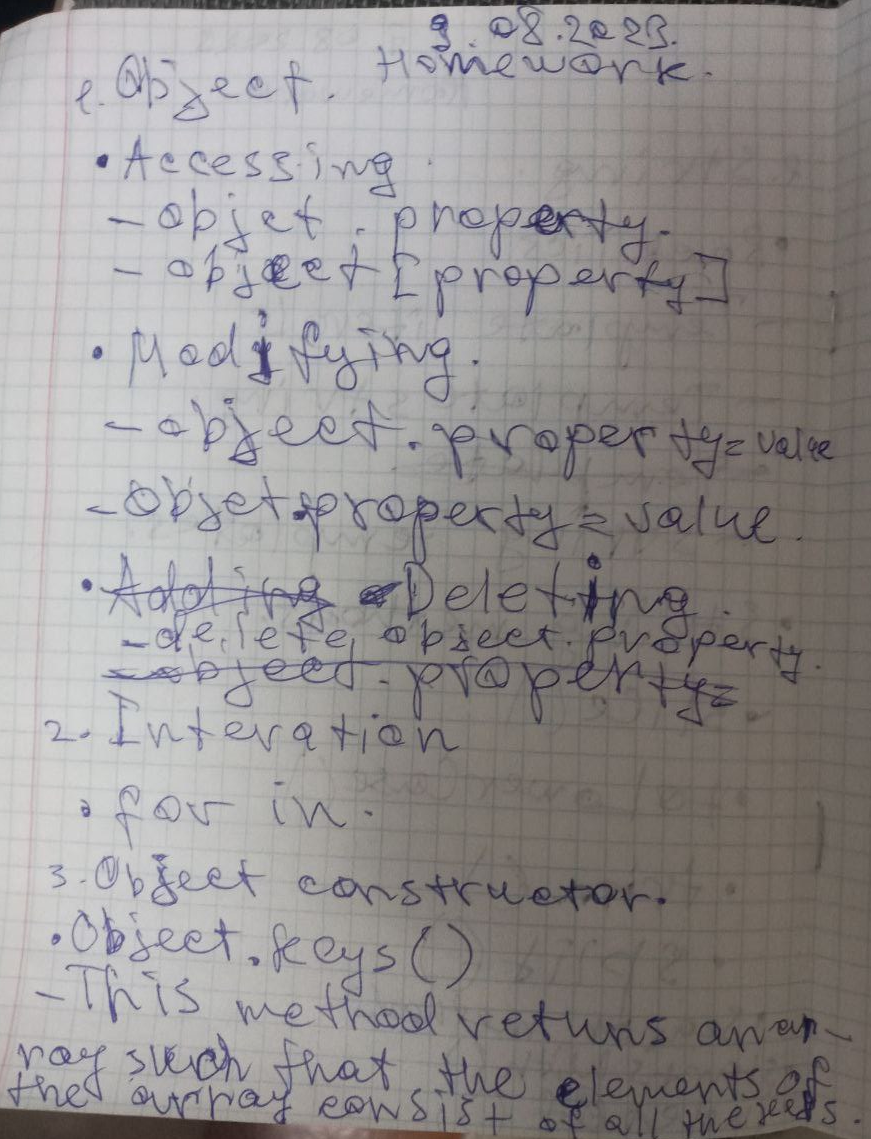 9.08.2023.
Homework.
1. Object.
• Accessing.
- objet.property.
- object[property]
• Modifying.
- object.property=value
- Objet.property=value.
• Adding Deleting.
- delete object.property.
- object.property=
2. Interation
• for in.
3. Object constructor.
• Object.keys()
- This method retuns an ar-
ray such that the elements of
the array consist of all the